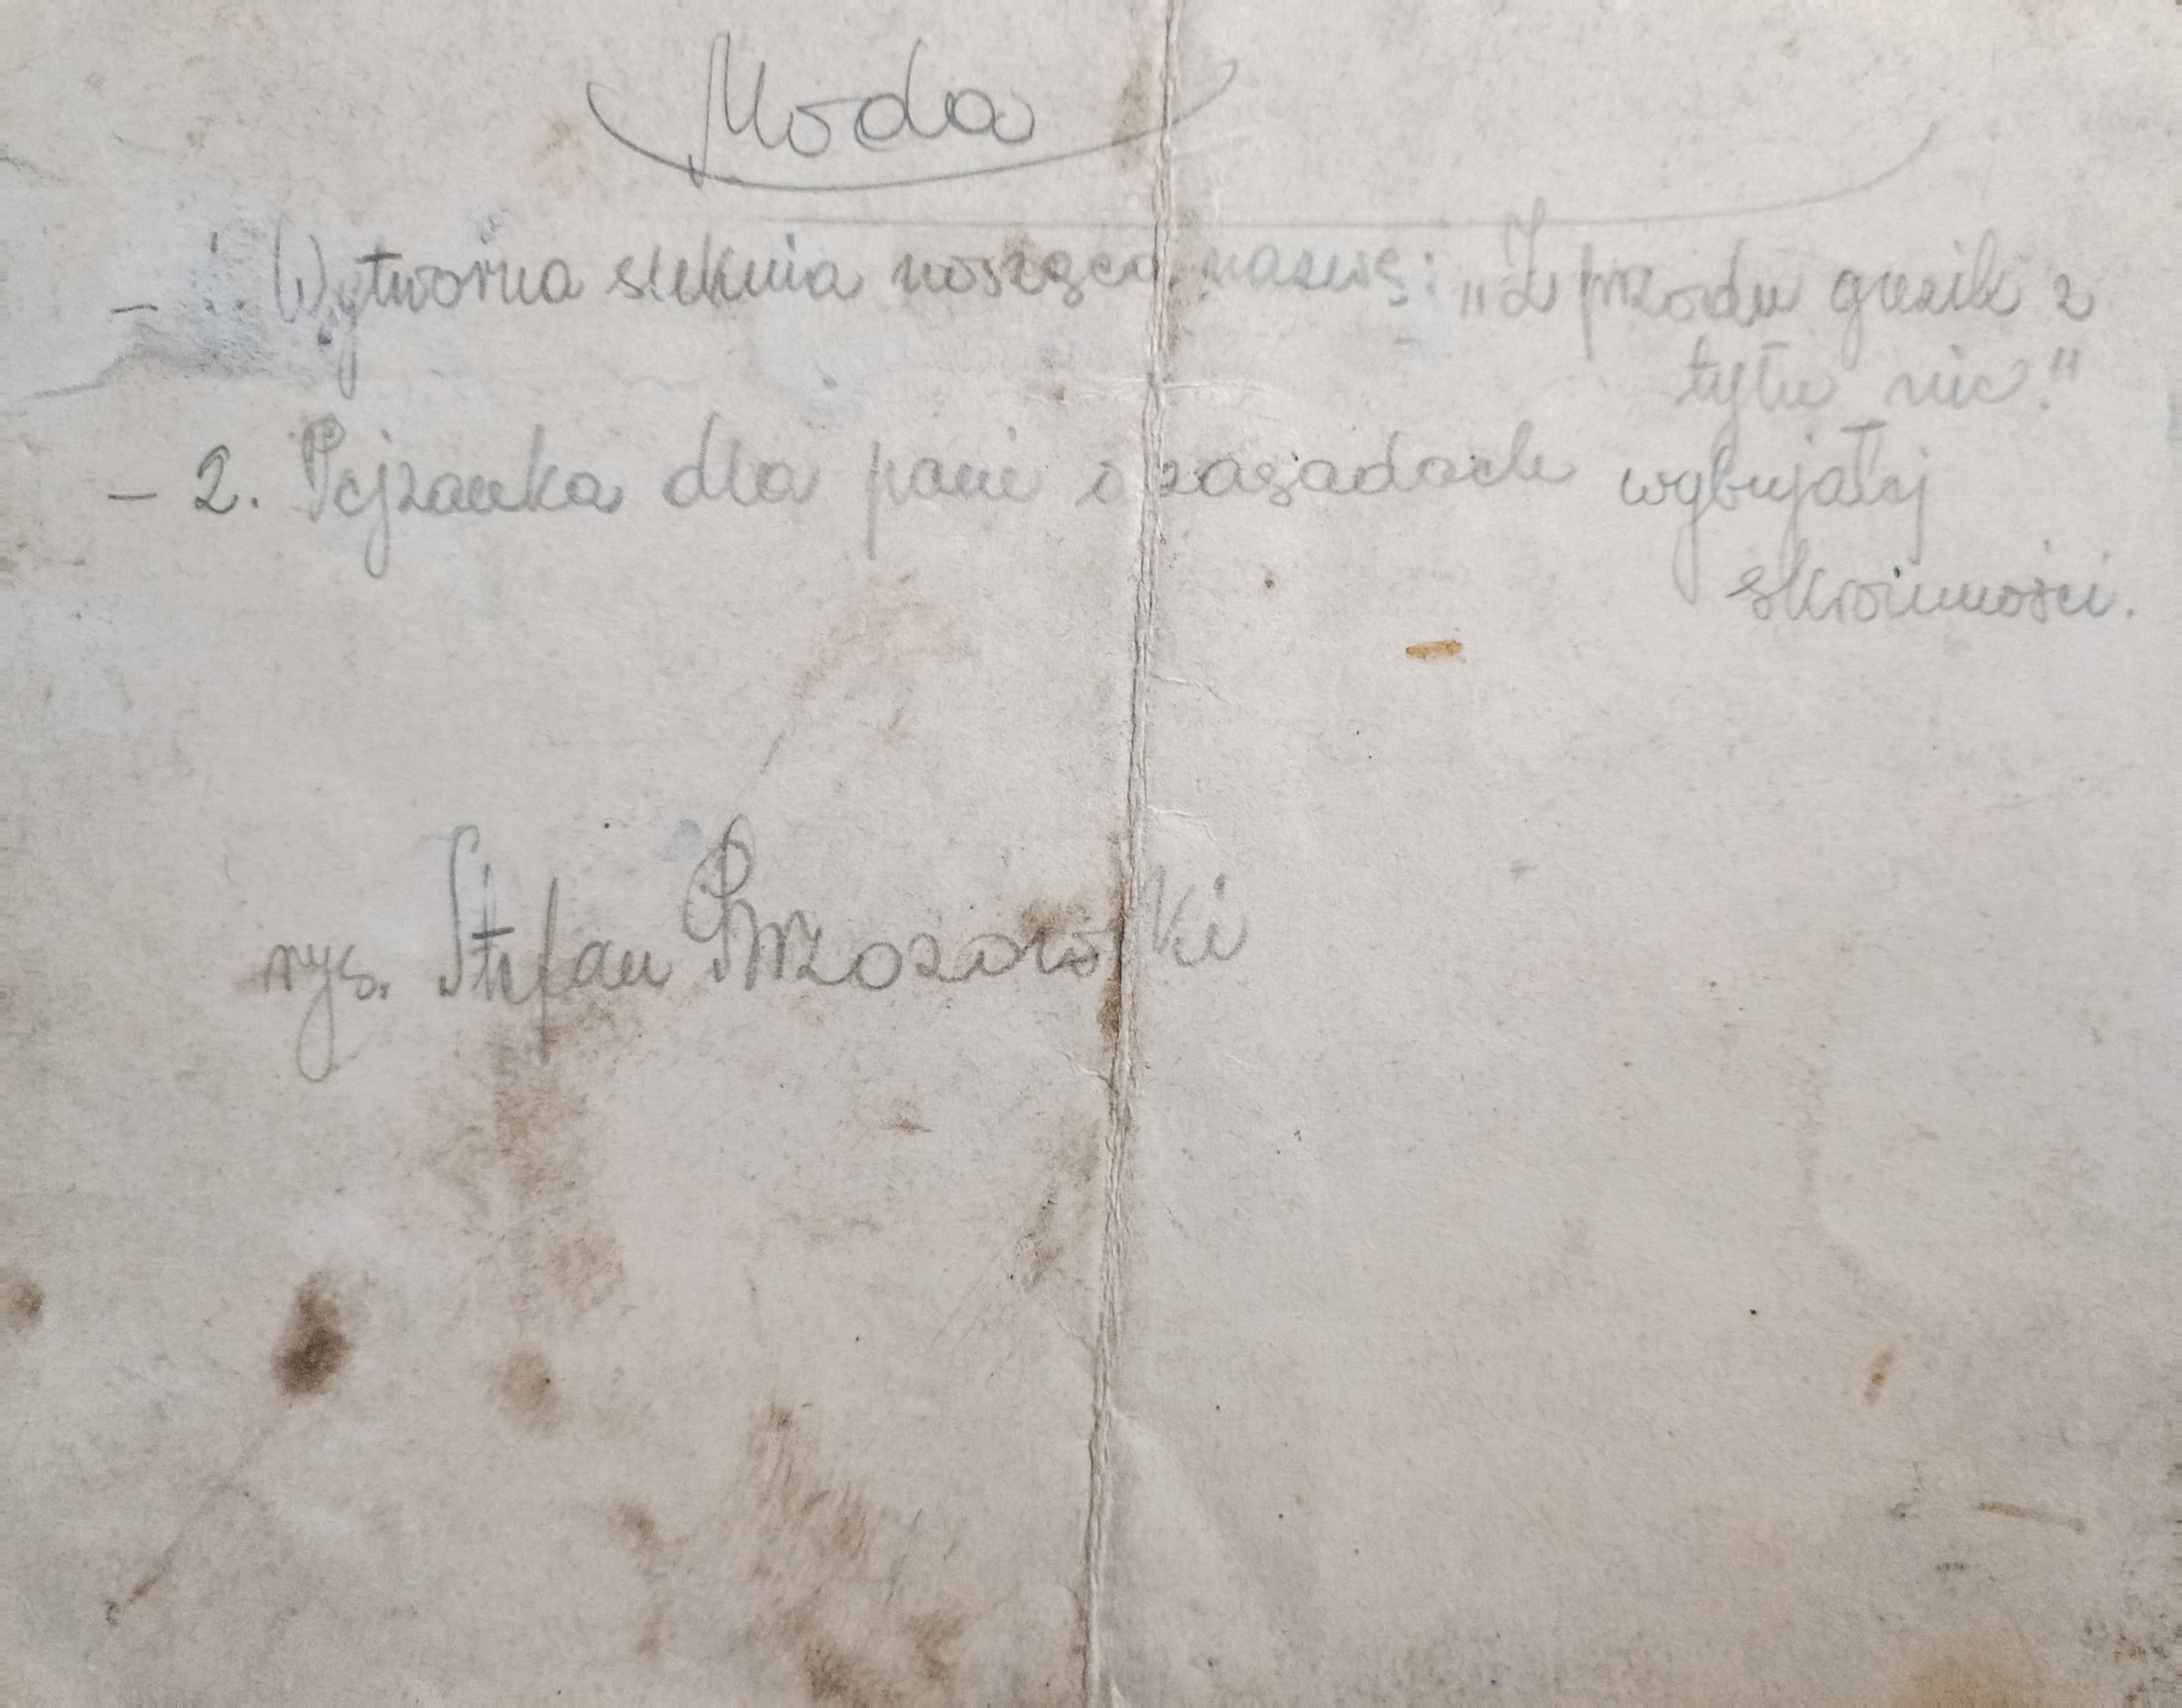 Moda
- 1. Wytworna suknia nosząca nazwę: „Z przodu guzik z
tyłu nic."
- 2. Pejzanka dla pani o zasadach wybujałej
skromności.
rys. Stefan Brzozowski